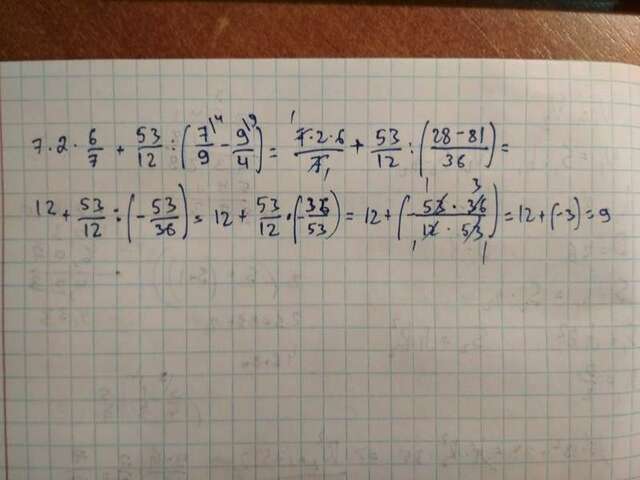 7 · 2 · 6/7 + 53/12 : (7/9 |4 - 9/4 |9) = 7 · 2 · 6/7 1 1 + 53/12 : (28 - 81/36) =
12 + 53/12 : (- 53/36) = 12 + 53/12 · (- 36/53) = 12 + (- 53 · 36/12 · 53 1 3 1 1) = 12 + (-3) = 9